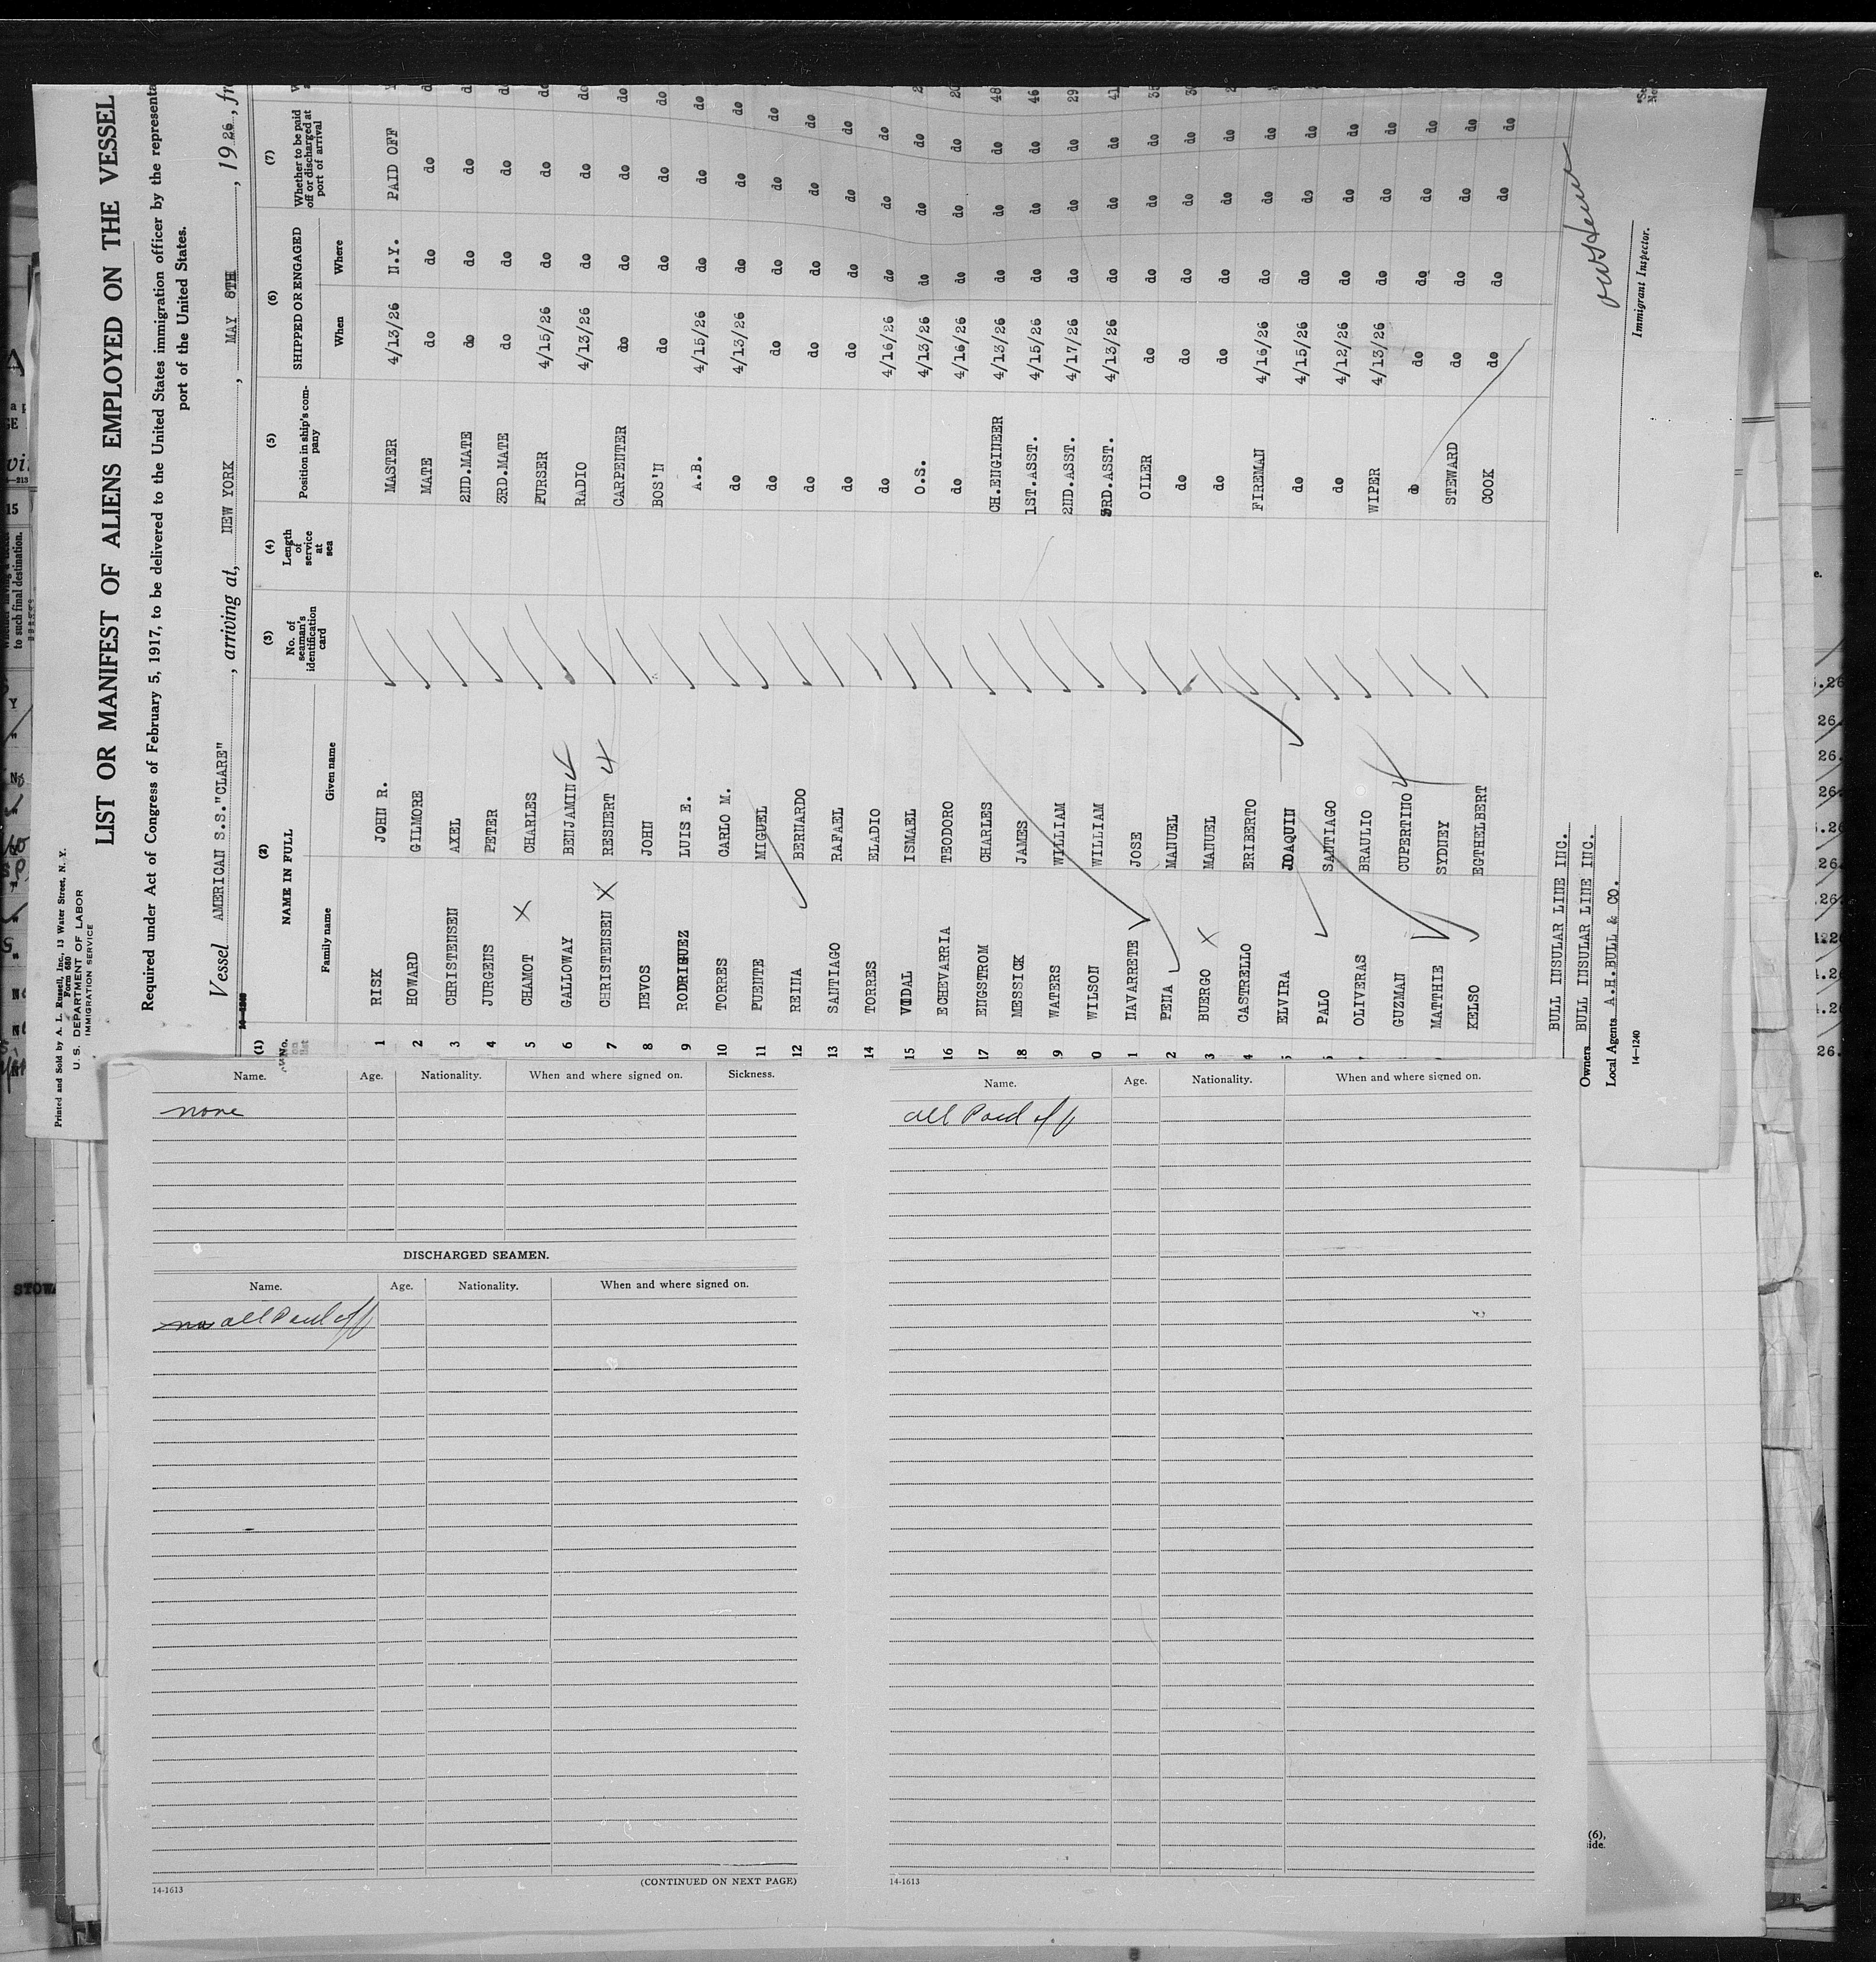 Printed and Sold by A. L. Russell, Inc., 13 Water Street, N. Y.
Form 680
U. S. DEPARTMENT OF LABOR
IMMIGRATION SERVICE
LIST OR MANIFEST OF ALIENS EMPLOYED ON THE VESSEL
Required under Act of Congress of February 5, 1917, to be delivered to the United States immigration officer by the representa
port of the United States.
Vessel AMERICAN S.S."CLARE", arriving at, NEW YORK, MAY 8TH, 1926, fr
(1) (2) (3) (4) (5) (6) (7)
No. on list NAME IN FULL No. of seaman's identification card Length of service at sea Position in ship's company SHIPPED OR ENGAGED Whether to be paid off or discharged at port of arrival
Family name Given name When Where
1 RISK JOHN R. MASTER 4/13/26 N.Y. PAID OFF
2 HOWARD GILMORE MATE do do do do
3 CHRISTENSEN AXEL 2ND.MATE do do do do
4 JURGENS PETER 3RD.MATE do do do do
5 CHAMOT CHARLES PURSER 4/15/26 do do do
6 GALLOWAY BENJAMIN RADIO 4/13/26 do do do
7 CHRISTENSEN RESNERT CARPENTER do do do do
8 NEVOS JOHN BOS'N do do do do
9 RODRIGUEZ LUIS E. A.B. 4/15/26 do do do
10 TORRES CARLO M. do 4/13/26 do do do
11 PUENTE MIGUEL do do do do do
12 REINA BERNARDO do do do do do
13 SANTIAGO RAFAEL do do do do do
14 TORRES ELADIO do 4/16/26 do do do
15 VIDAL ISMAEL O.S. 4/13/26 do do do
16 ECHEVARRIA TEODORO do 4/16/26 do do do
17 ENGSTROM CHARLES CH.ENGINEER 4/13/26 do do do 48
18 MESSICK JAMES 1ST.ASST. 4/15/26 do do do 46
9 WATERS WILLIAM 2ND.ASST. 4/17/26 do do do 29
0 WILSON WILLIAM 3RD.ASST. 4/13/26 do do do 41
1 NAVARRETE JOSE OILER do do do do
2 PENA MANUEL do do do do do
3 BUERGO MANUEL do do do do do
4 CASTRELLO ERIBERTO FIREMAN 4/16/26 do do do
5 ELVIRA JOAQUIN do 4/15/26 do do do
6 PALO SANTIAGO do 4/12/26 do do do
7 OLIVERAS BRAULIO WIPER 4/13/26 do do do
GUZMAN CUPERTINO do do do do do
MATTHIE SYDNEY STEWARD do do do do
KELSO EGTHELBERT COOK do do do do
BULL INSULAR LINE INC.
Owners BULL INSULAR LINE INC.
Local Agents A.H.BULL & CO.
Immigrant Inspector.
14-1240
Name. Age. Nationality. When and where signed on. Sickness.
none
DISCHARGED SEAMEN.
Name. Age. Nationality. When and where signed on.
all Paid off
14-1613
(CONTINUED ON NEXT PAGE)
Name. Age. Nationality. When and where signed on.
all Paid off
14-1613